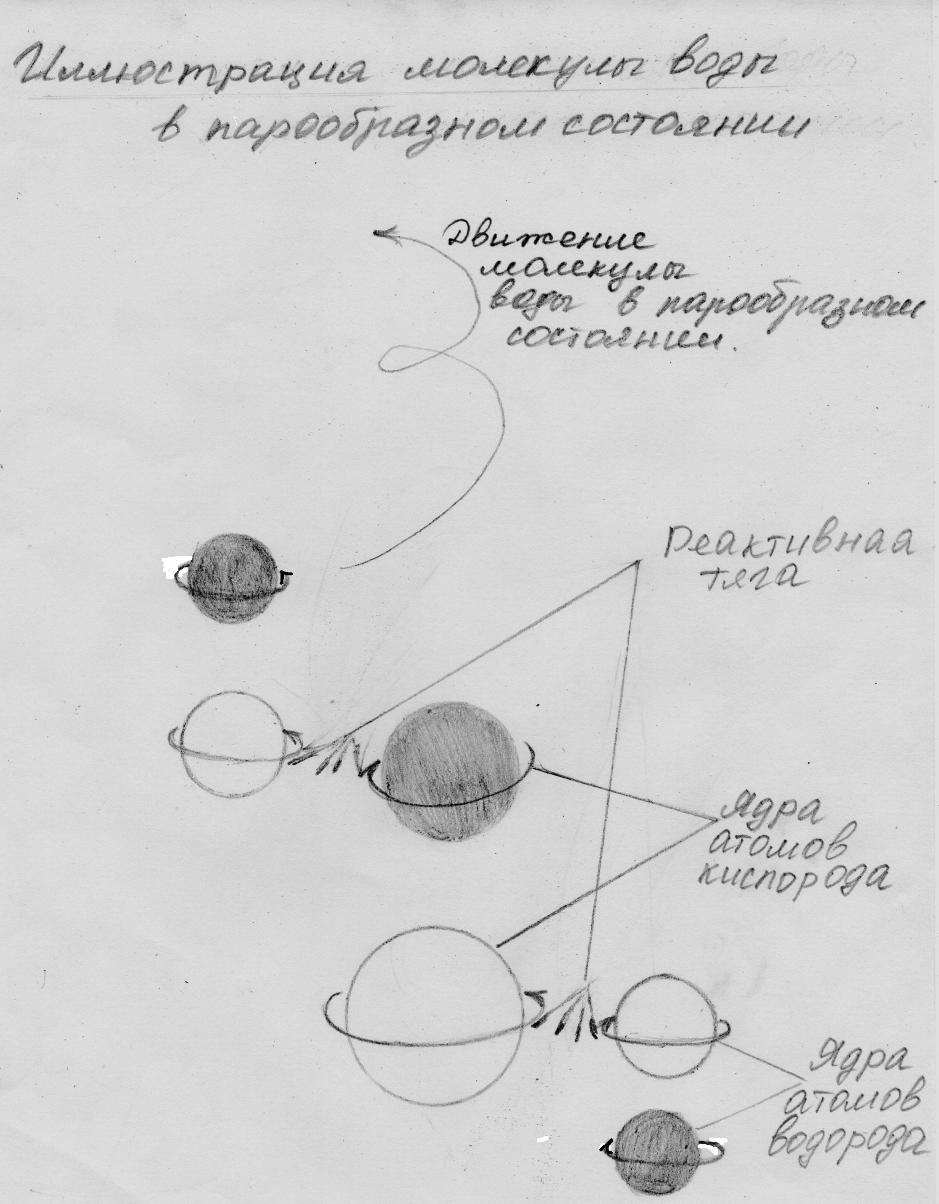 Иллюстрация молекулы воды
в парообразном состоянии
Движение
молекулы
воды в парообразном
состоянии.
Реактивная
тяга
Ядра
атомов
кислорода
Ядра
атомов
водорода